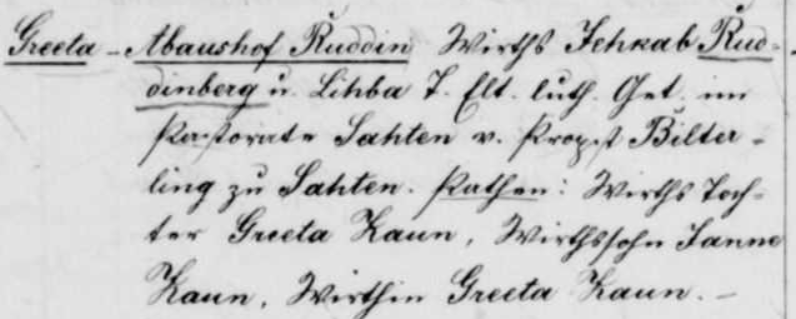 Greeta - Abaushof Ruddin Wirths Jehkab Rud-
dinberg u. Lihba T. Elt. luth. Get. im
Pastorate Sahten v. Propst Bilter-
ling zu Sahten. Pathen: Wirths Toch-
ter Greeta Kaun, Wirthssohn Janne
Kaun, Wirthin Greeta Kaun. -